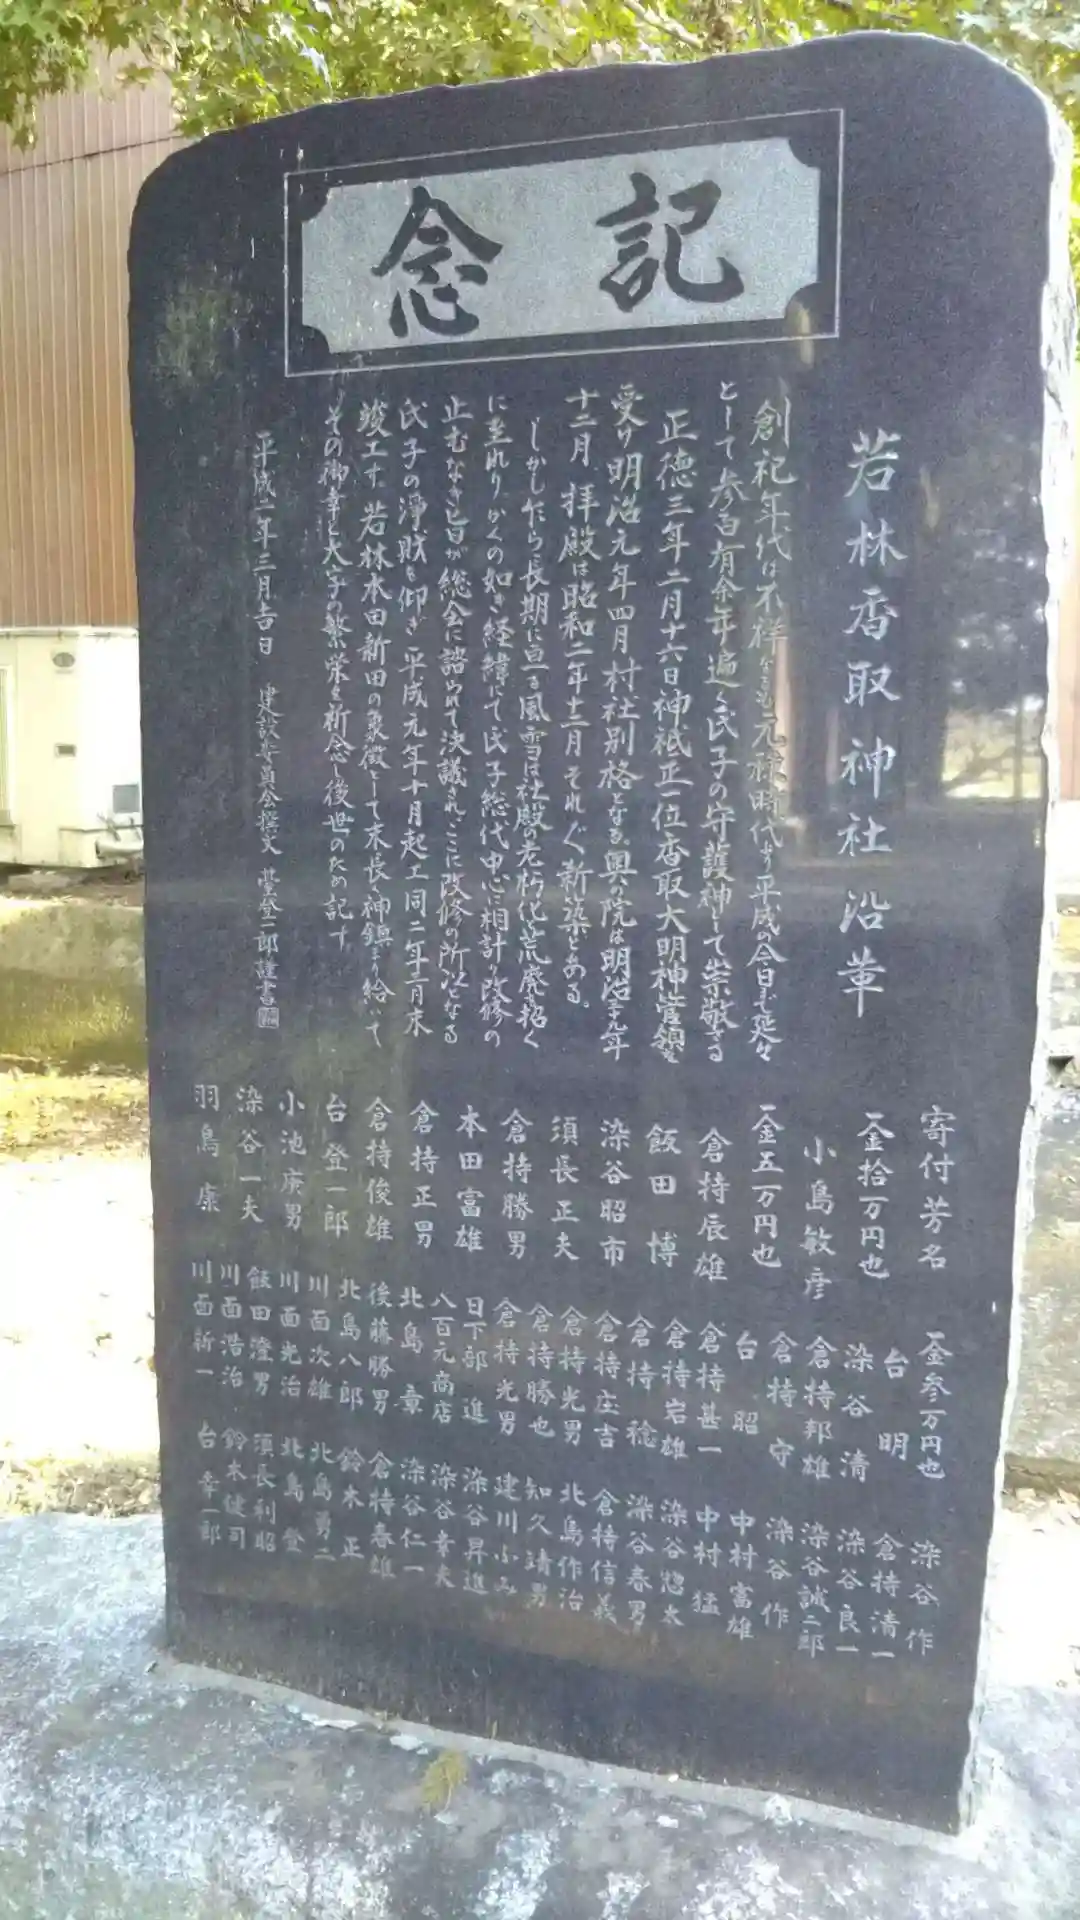 記念
若林香取神社沿革
創祀年代は不祥なるも元禄時代より平成の今日まで延々
として参百有余年遍く氏子の守護神として崇敬さる
正徳三年二月十六日神祇正一位香取大明神管領を
受け明治元年四月村社別格となる。奥の院は明治三十九年
十二月、拝殿は昭和二年十二月それぞれ新築とある。
しかし乍ら長期に亘る風雪は社殿の老朽化と荒廃を招く
に至れり、かくの如き経緯にて氏子総代中心に相計り改修の
止むなき旨が総会に諮られて決議され、ここに改修の所以となる
氏子の浄財を仰ぎ平成元年十月起工同二年二月末
竣工す。若林本田新田の象徴として末長く神鎮まり給いて
その御幸と大字の繁栄を祈念し後世のため記す
平成二年三月吉日 建設委員会撰文 登一郎謹書
寄付芳名
一金拾万円也
小島敏彦
一金五万円也
倉持辰雄
飯田博
染谷昭市
須長正夫
倉持勝男
本田富雄
倉持正男
倉持俊雄
台登一郎
小池庚男
染谷一夫
羽鳥康
一金参万円也
台明
染谷清
倉持邦雄
倉持守
台昭
倉持甚一
倉持岩雄
倉持稔
倉持庄吉
倉持光男
倉持勝也
倉持光男
日下部進
八百元商店
北島章
後藤勝男
北島八郎
川面次雄
川面光治
飯田澄男
川面浩治
川面新一
染谷作
倉持清一
染谷良一
染谷誠二郎
染谷作
中村富雄
中村猛
染谷惣太
染谷春男
倉持信義
北島作治
知久靖男
建川ふみ
染谷昇進
染谷幸夫
染谷仁一
倉持春雄
鈴木正
北島勇二
北島登
須長利昭
鈴木健司
台幸一郎